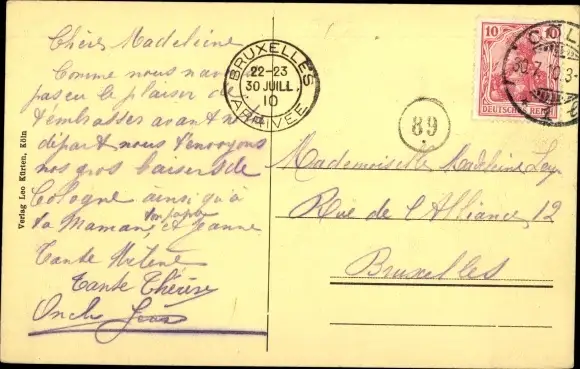 Chère Madeleine
Comme nous n'avons
pas eu le plaisir de
t'embrasser avant no
départ nous t'envoyons
nos gros baisers de
Cologne ainsi qu'à
ton papa
ta Maman et Jeanne
Tante Hélène
Tante Thérèse
Oncle
Verlag Leo Kürten, Köln
BRUXELLES
22-23
30 JUILL.
10
ARRIVÉE
10 10
DEUTSCHES REICH
89
Mademoiselle Madeleine
Rue de l'Alliance, 12
Bruxelles